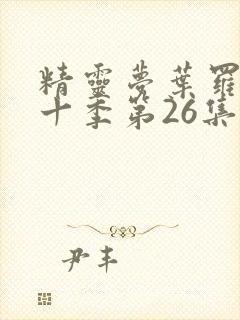 精靈夢葉羅
十季第26集
尹丰